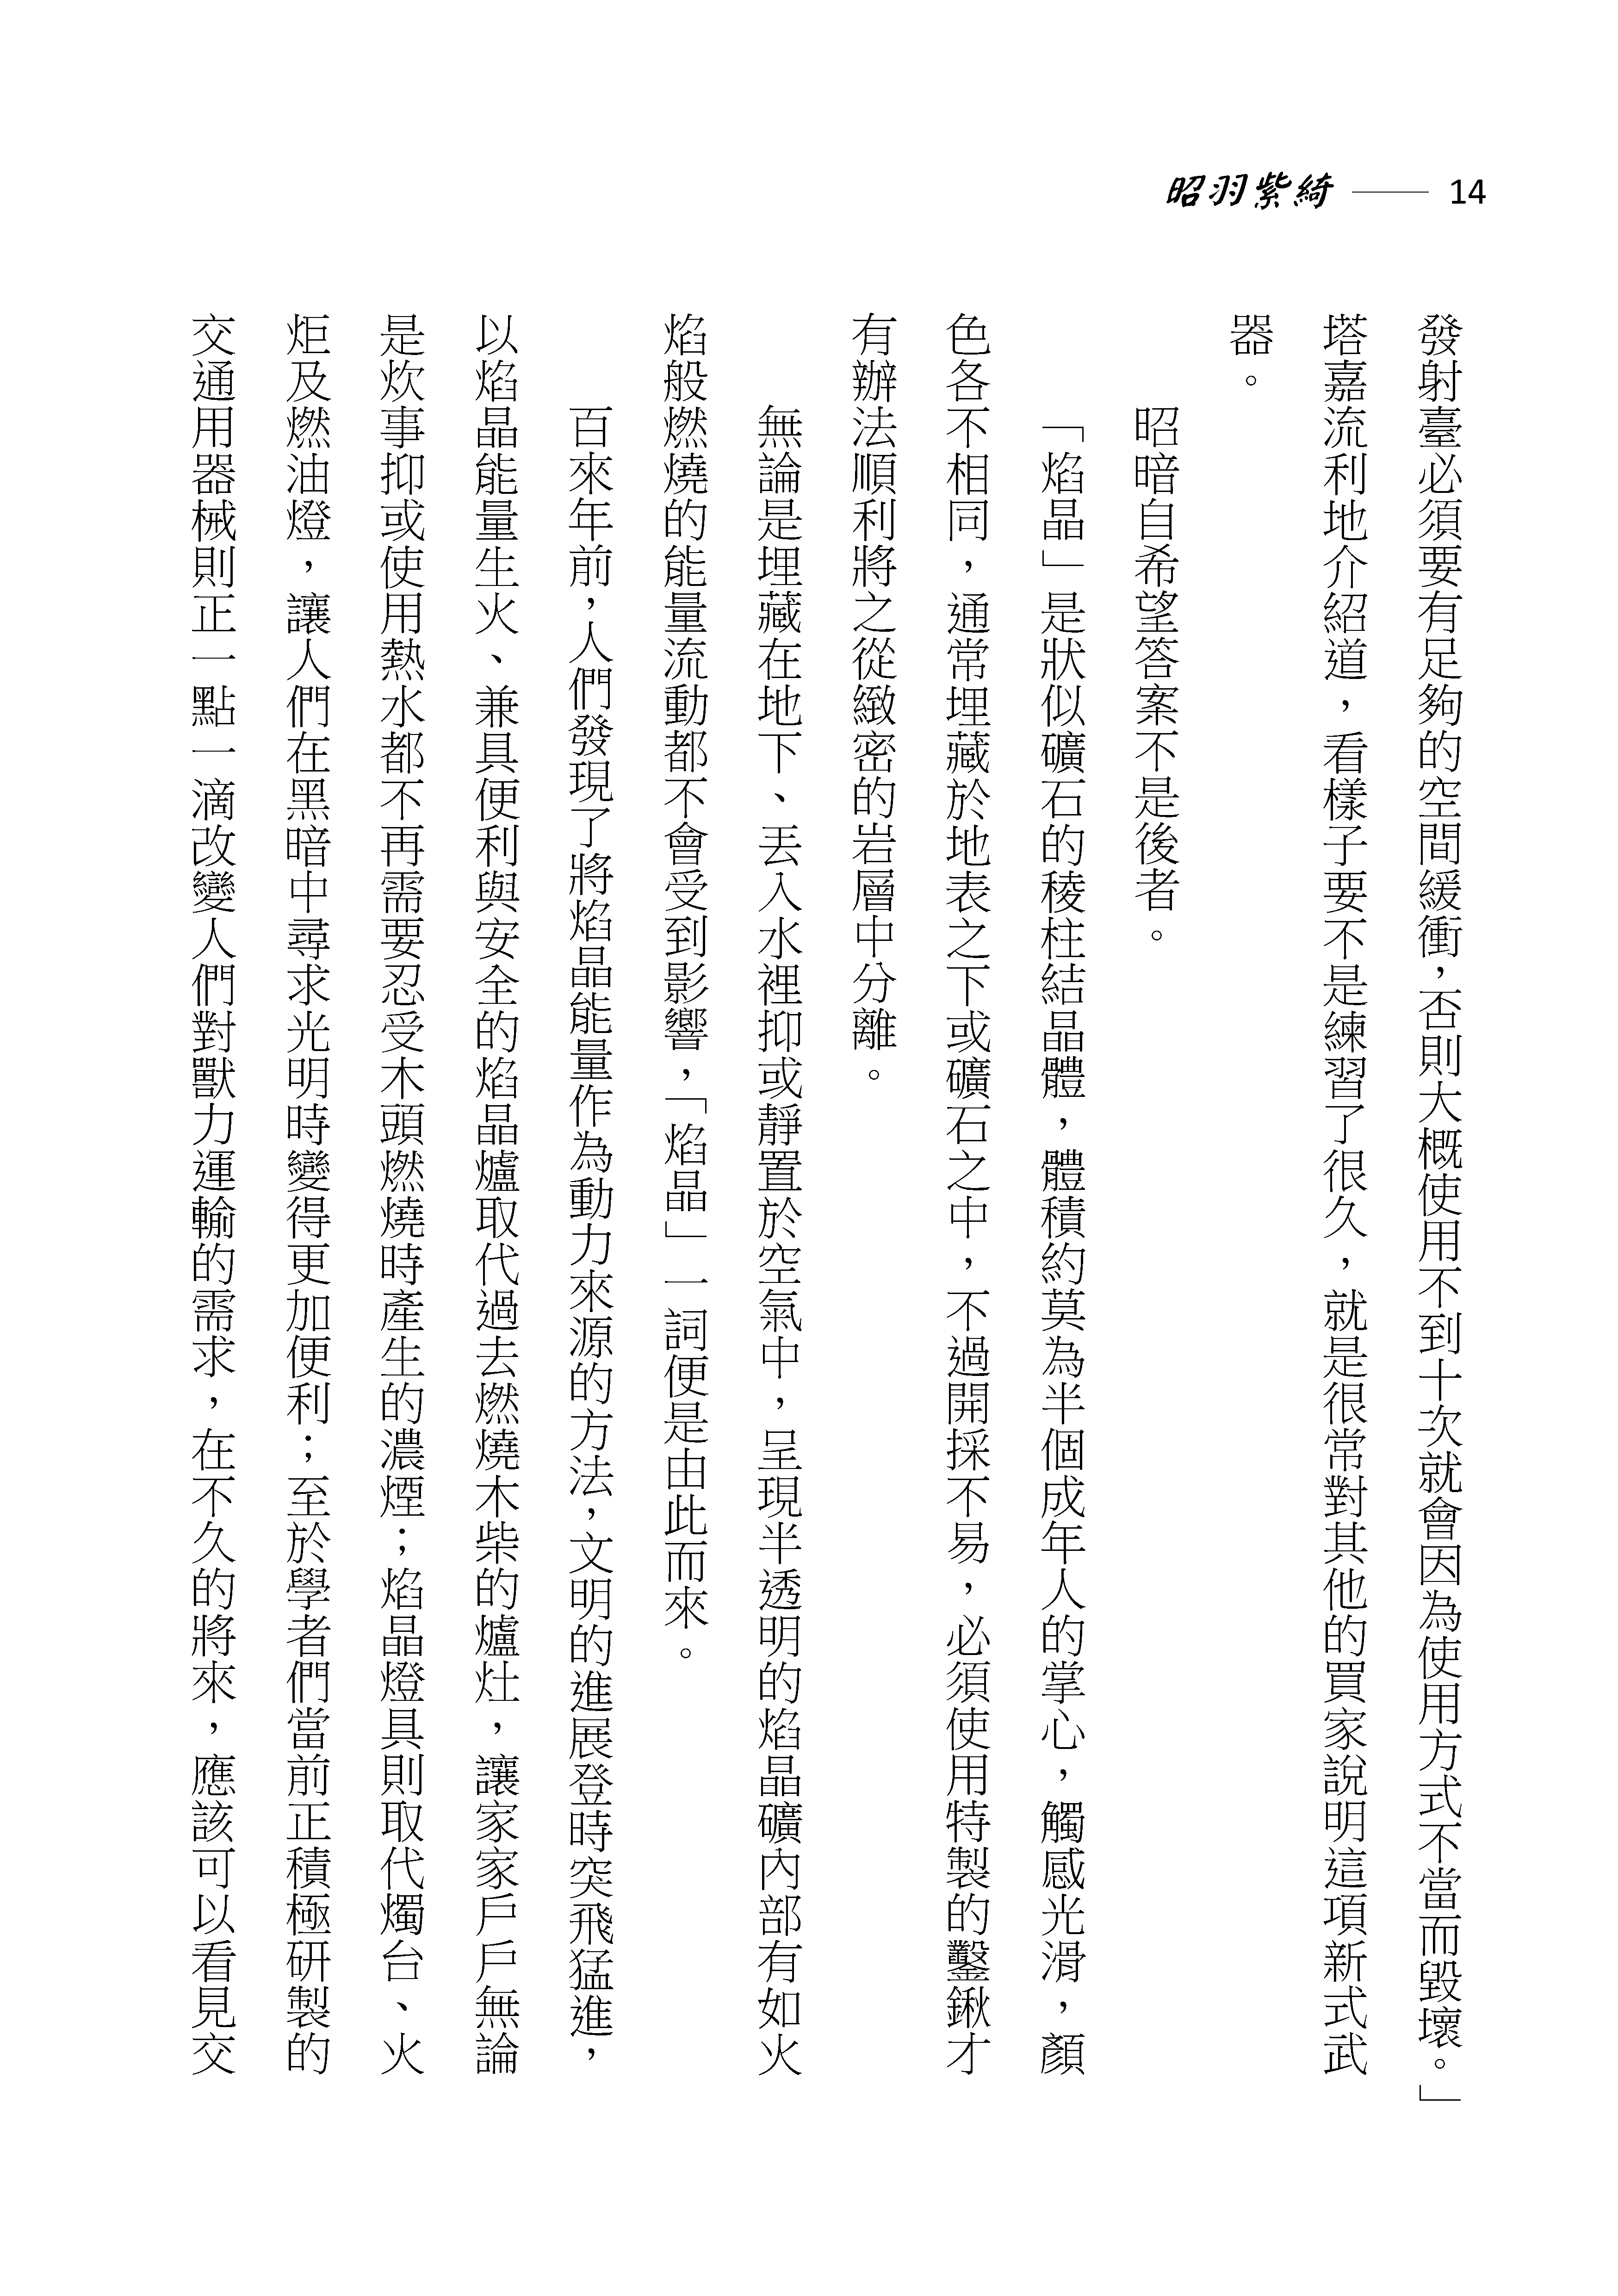 昭羽紫綺 —— 14
發射臺必須要有足夠的空間緩衝，否則大概使用不到十次就會因為使用方式不當而毀壞。」
塔嘉流利地介紹道，看樣子要不是練習了很久，就是很常對其他的買家說明這項新式武
器。
昭暗自希望答案不是後者。
「焰晶」是狀似礦石的稜柱結晶體，體積約莫為半個成年人的掌心，觸感光滑，顏
色各不相同，通常埋藏於地表之下或礦石之中，不過開採不易，必須使用特製的鑿鍬才
有辦法順利將之從緻密的岩層中分離。
無論是埋藏在地下、丟入水裡抑或靜置於空氣中，呈現半透明的焰晶礦內部有如火
焰般燃燒的能量流動都不會受到影響，「焰晶」一詞便是由此而來。
百來年前，人們發現了將焰晶能量作為動力來源的方法，文明的進展登時突飛猛進，
以焰晶能量生火、兼具便利與安全的焰晶爐取代過去燃燒木柴的爐灶，讓家家戶戶無論
是炊事抑或使用熱水都不再需要忍受木頭燃燒時產生的濃煙；焰晶燈具則取代燭台、火
炬及燃油燈，讓人們在黑暗中尋求光明時變得更加便利；至於學者們當前正積極研製的
交通用器械則正一點一滴改變人們對獸力運輸的需求，在不久的將來，應該可以看見交